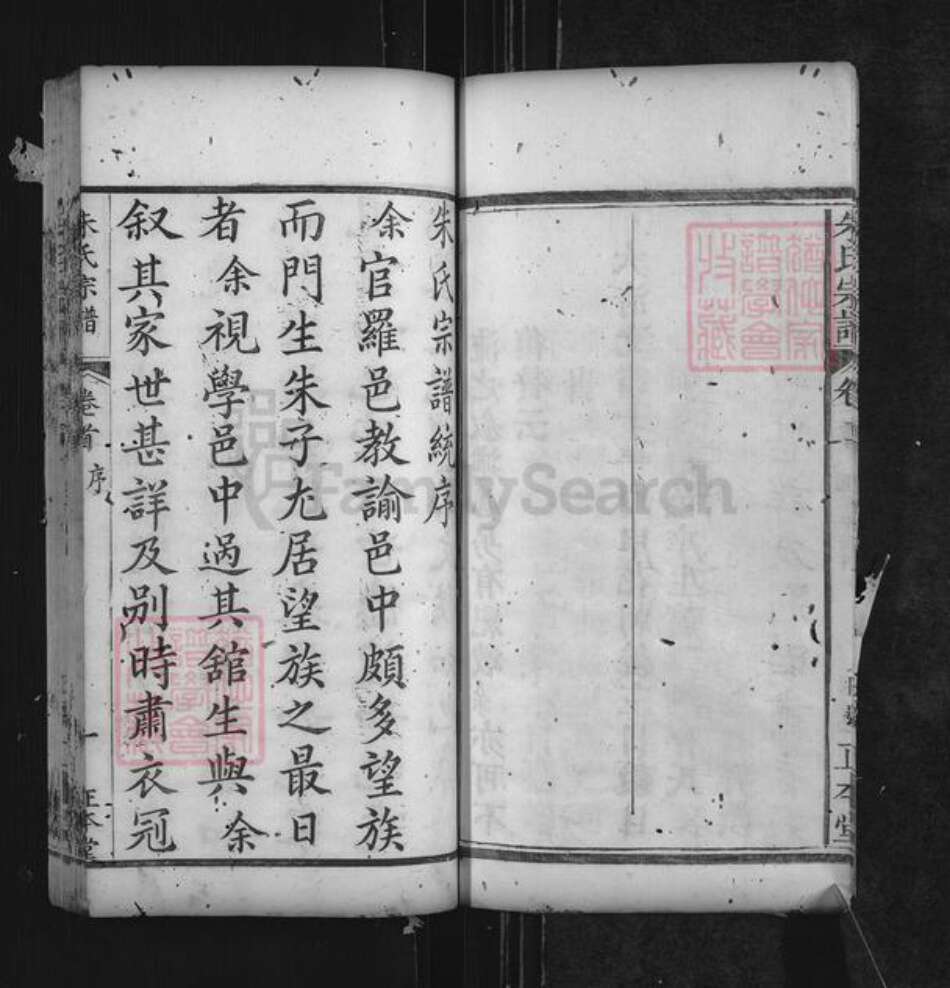 朱氏宗譜
正本堂
朱氏宗譜統序
余官羅邑教諭邑中頗多望族
而門生朱子尤居望族之最日
者余視學邑中過其舘生與余
叙其家世甚詳及别時肅衣冠
朱氏宗譜
卷首
序
一
正本堂
FamilySearch